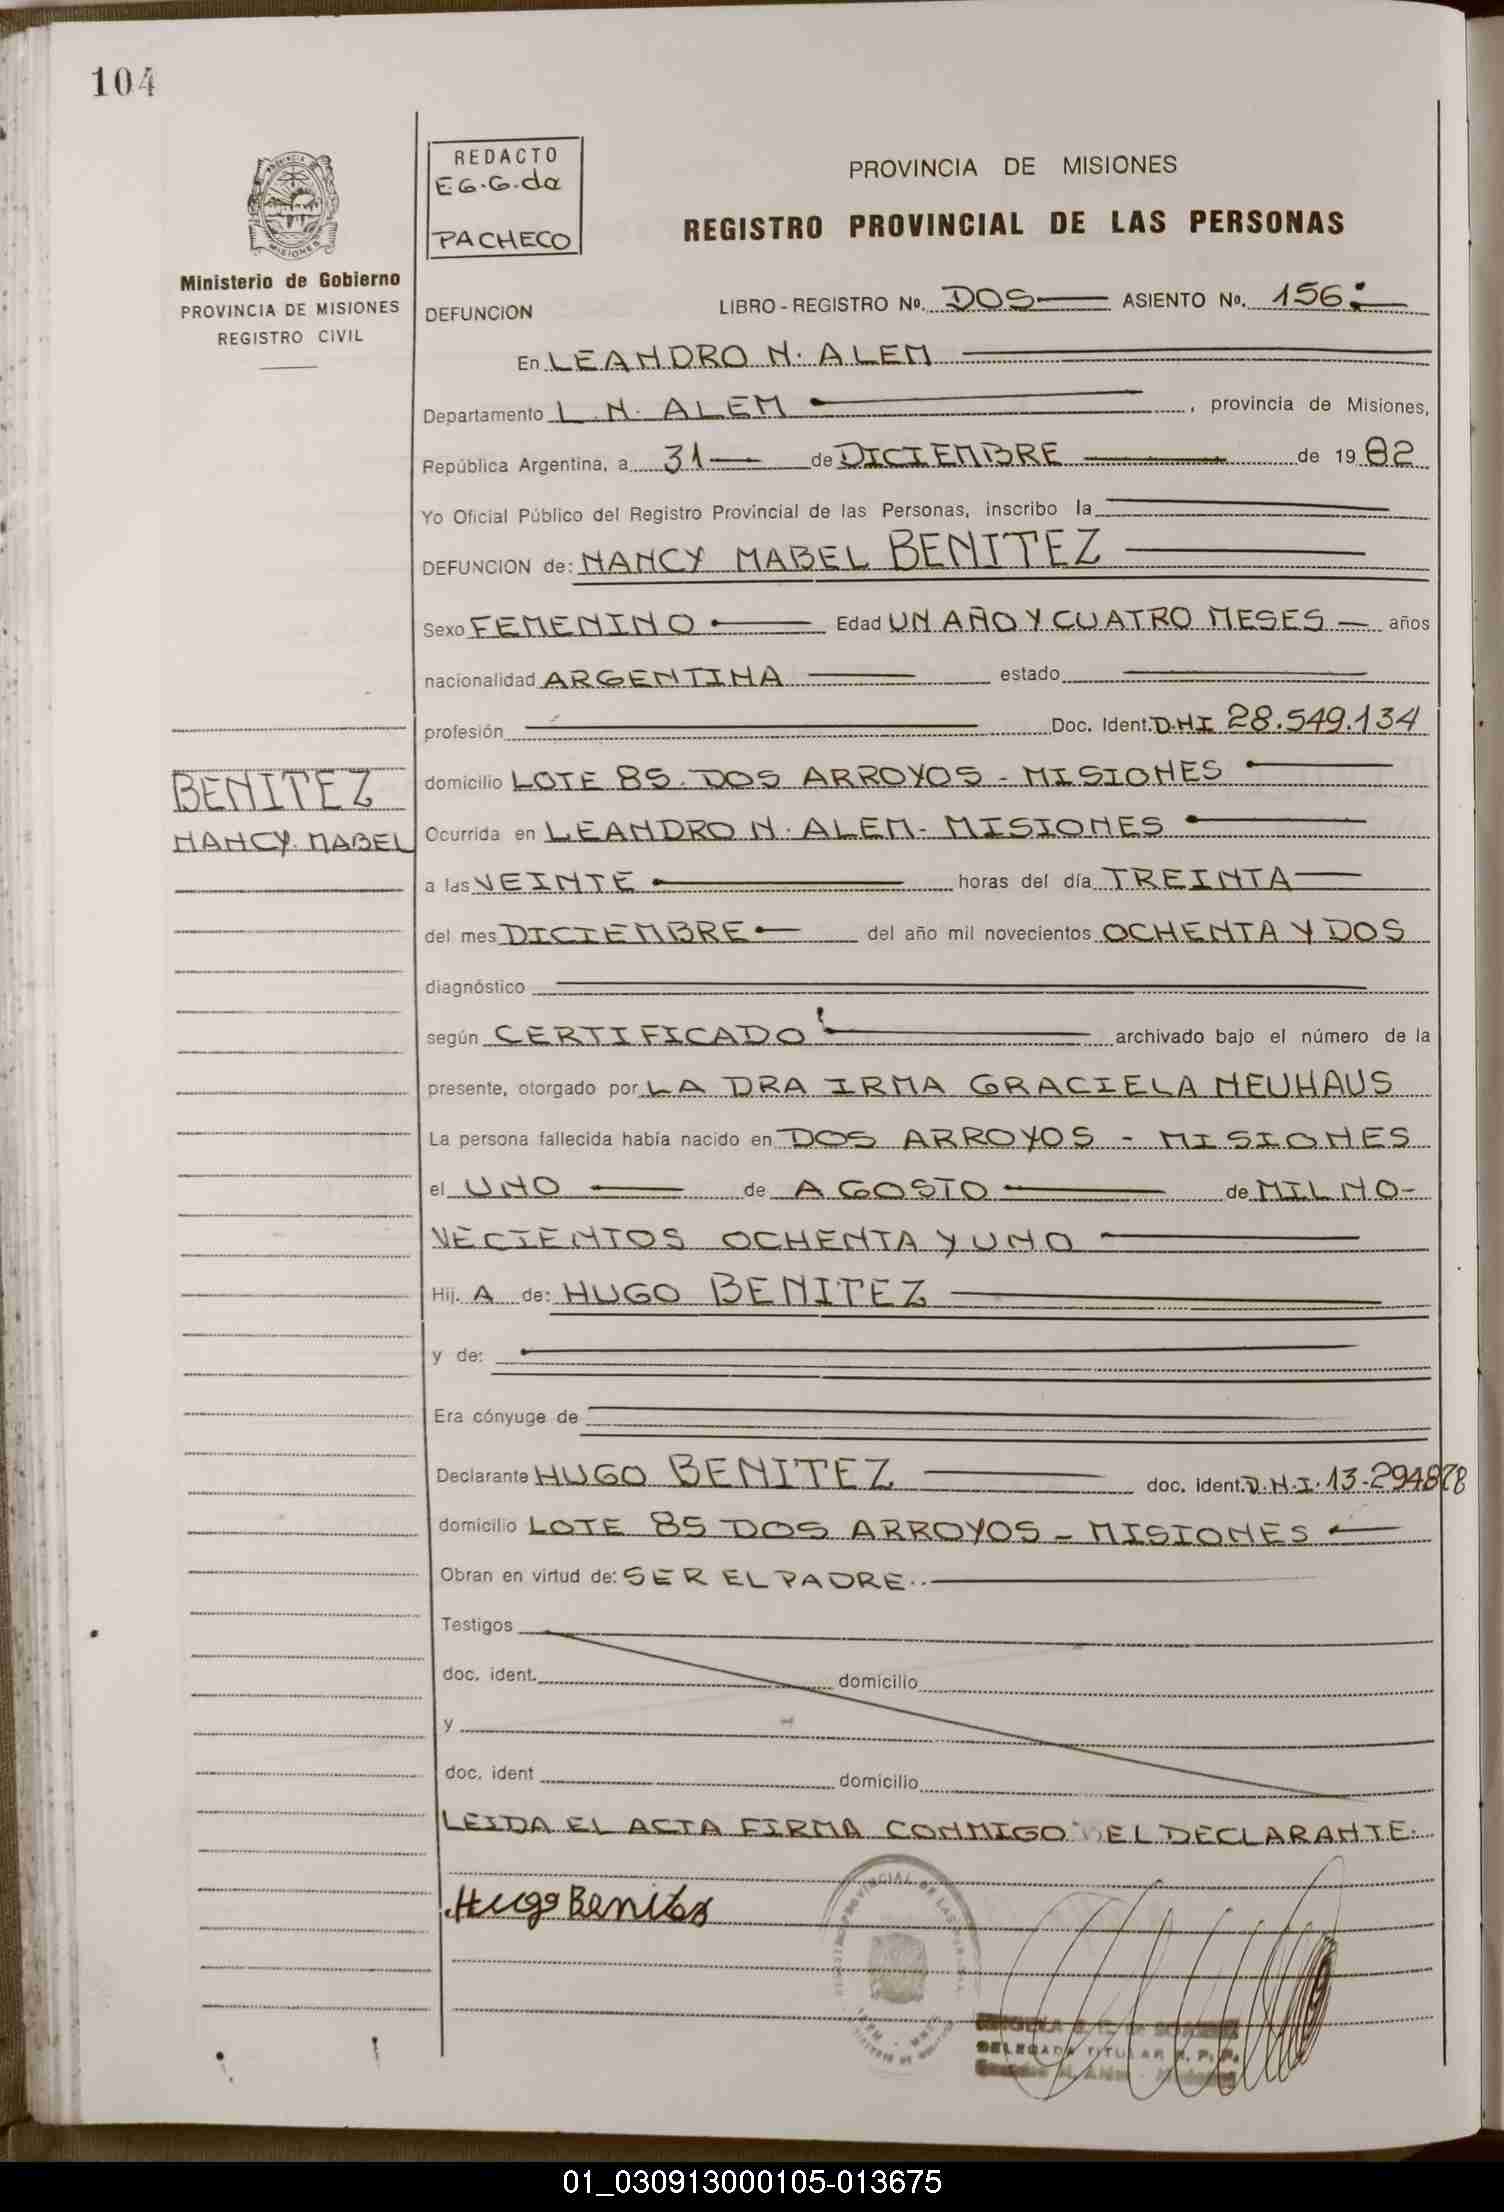 104
REDACTO
E.G.G. da
PACHECO
PROVINCIA DE MISIONES
REGISTRO PROVINCIAL DE LAS PERSONAS
Ministerio de Gobierno
PROVINCIA DE MISIONES
REGISTRO CIVIL
DEFUNCION LIBRO - REGISTRO Nº. DOS ASIENTO Nº. 156
En LEANDRO N. ALEM
Departamento L. N. ALEM, provincia de Misiones,
República Argentina, a 31 de DICIEMBRE de 1982
Yo Oficial Público del Registro Provincial de las Personas, inscribo la
DEFUNCION de: NANCY MABEL BENITEZ
Sexo FEMENINO Edad UN AÑO Y CUATRO MESES años
nacionalidad ARGENTINA estado
profesión Doc. Ident. D.N.I 28.549.134
BENITEZ
NANCY MABEL
domicilio LOTE 85. DOS ARROYOS - MISIONES
Ocurrida en LEANDRO N. ALEM - MISIONES
a las VEINTE horas del día TREINTA
del mes DICIEMBRE del año mil novecientos OCHENTA Y DOS
diagnóstico
según CERTIFICADO archivado bajo el número de la
presente, otorgado por LA DRA IRMA GRACIELA NEUHAUS
La persona fallecida había nacido en DOS ARROYOS - MISIONES
el UNO de AGOSTO de MIL NO-
VECIENTOS OCHENTA Y UNO
Hij. A de: HUGO BENITEZ
y de:
Era cónyuge de
Declarante HUGO BENITEZ doc. ident. D.N.I. 13-294878
domicilio LOTE 85 DOS ARROYOS - MISIONES
Obran en virtud de: SER EL PADRE
Testigos
doc. ident. domicilio
y
doc. ident domicilio
LEIDA EL ACTA FIRMA CONMIGO EL DECLARANTE.
Hugo Benitez
DELEGADA TITULAR R. P. P.
01_030913000105-013675